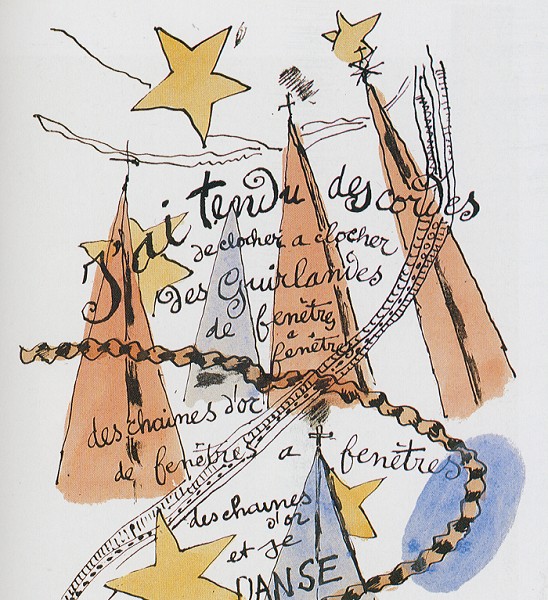 J'ai tendu des cordes
de clocher a clocher
des Guirlandes
de fenêtres
a
fenêtres
des chaines d'or
de fenêtres a fenêtres
des chaines
d'or
et je
DANSE